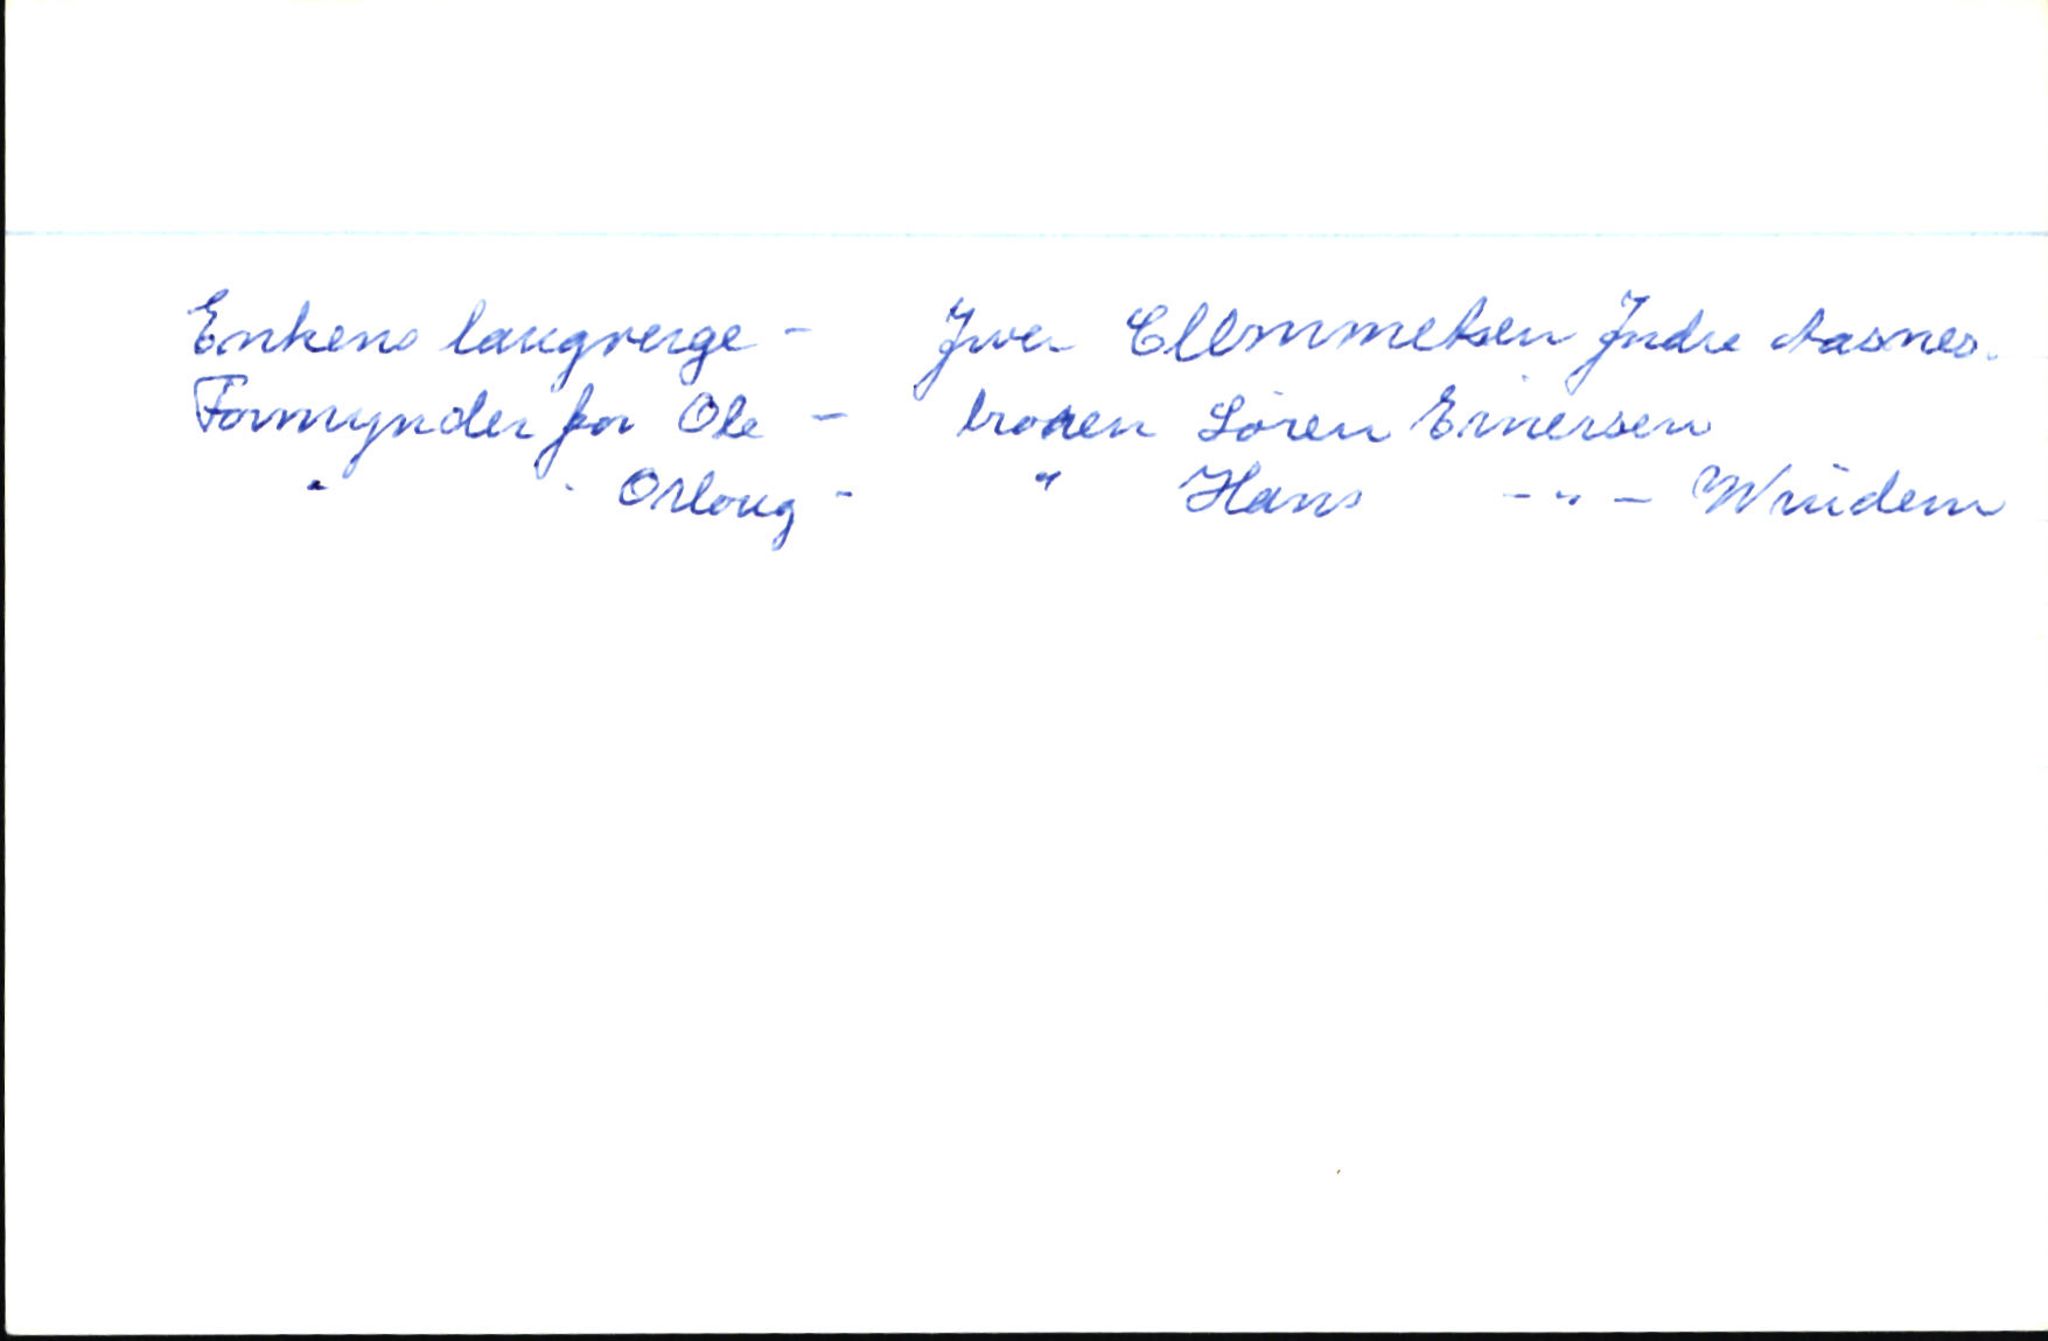 Enkens laugverge - Iver Clemmetsen Indre Aasnes.
Formynder for Ole - broren Sören Einersen
" " Orloug - " Hans - " - Wrudem